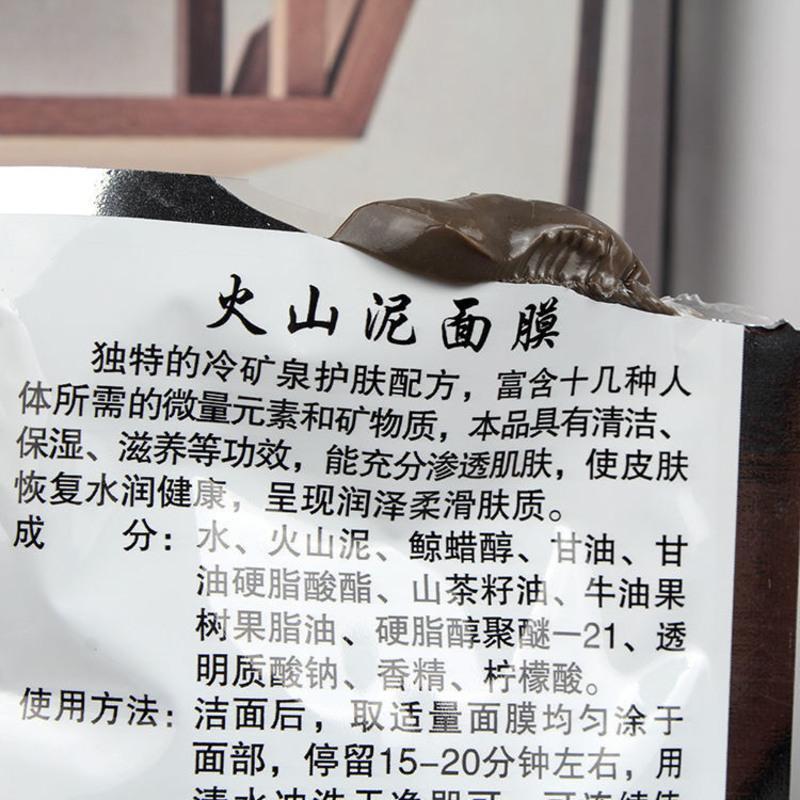 火山泥面膜
独特的冷矿泉护肤配方，富含十几种人
体所需的微量元素和矿物质，本品具有清洁、
保湿、滋养等功效，能充分渗透肌肤，使皮肤
恢复水润健康，呈现润泽柔滑肤质。
成 分：水、火山泥、鲸蜡醇、甘油、甘
油硬脂酸酯、山茶籽油、牛油果
树果脂油、硬脂醇聚醚—21、透
明质酸钠、香精、柠檬酸。
使用方法：洁面后，取适量面膜均匀涂于
面部，停留15–20分钟左右，用
清水冲洗干净即可，可连续使